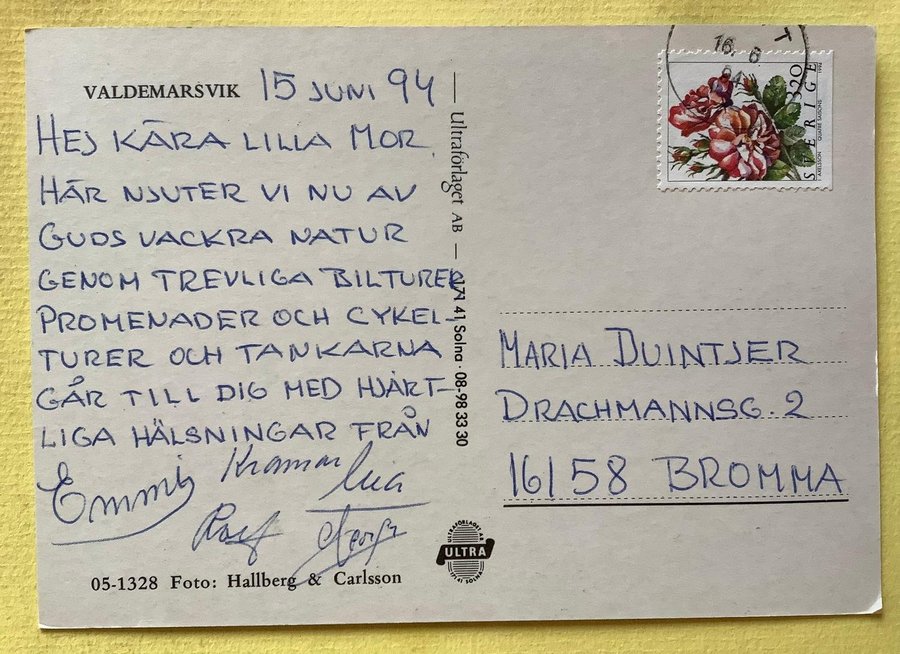 VALDEMARSVIK 15 JUNI 94
HEJ KÄRA LILLA MOR.
HÄR NJUTER VI NU AV
GUDS VACKRA NATUR
GENOM TREVLIGA BILTURER
PROMENADER OCH CYKEL-
TURER OCH TANKARNA
GÅR TILL DIG MED HJÄRT-
LIGA HÄLSNINGAR FRÅN
Kramar
Rolf
05-1328 Foto: Hallberg & Carlsson
— Ultraförlaget AB — 171 41 Solna · 08-98 33 30
ULTRAFÖRLAGET AB
ULTRA
171 41 SOLNA
16. 6
94
SVERIGE
320
1994
MARIA DUINTJER
DRACHMANNSG. 2
16158 BROMMA